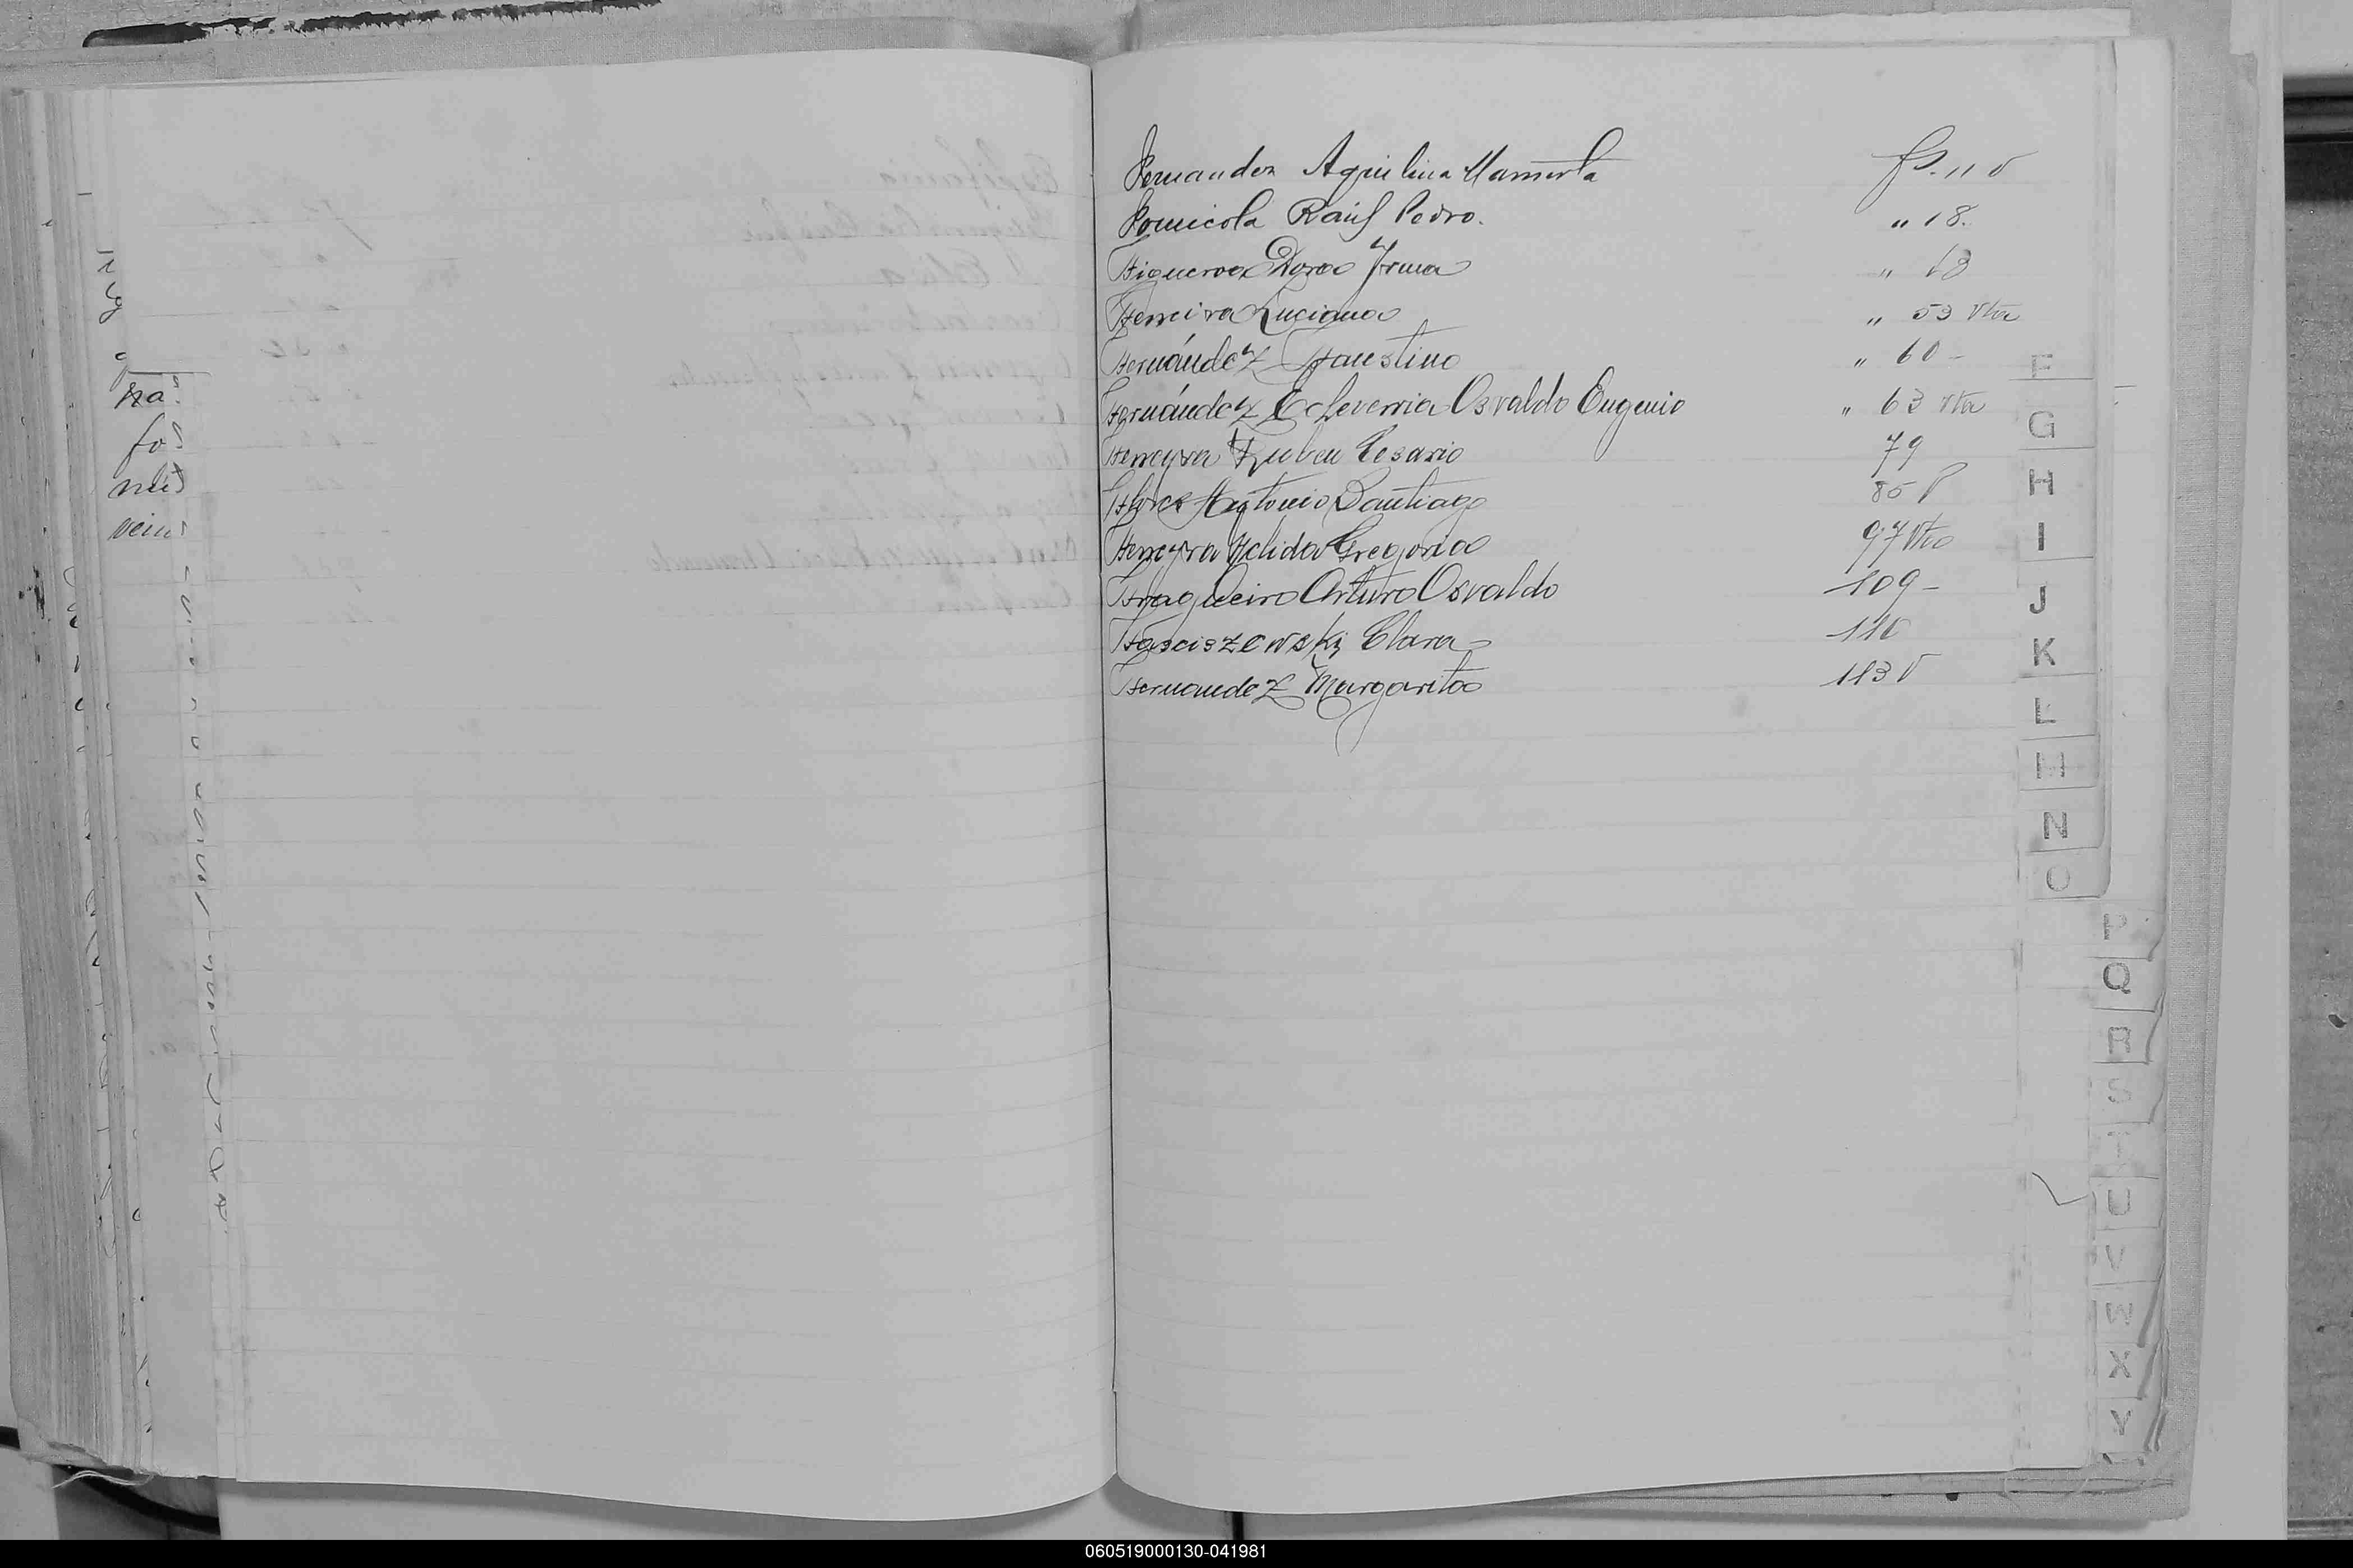 Fernandez Aquilina Mamerta fs. 11 v
Fornicola Raúl Pedro. " 18.
Figueroa Dora Irma " 18
Ferreira Luciana " 53 vta
Fernández Faustino " 60 -
Fernández Echeverria Osvaldo Eugenio " 63 vta
Ferreyra Ruben Cesario 79
Flores Antonio Santiago 85 v
Ferreyra Nelida Gregoria 97 vta
Fragueiro Arturo Osvaldo 109 -
Fasciszewski Clara 110
Fernandez Margarita 113 v
F
G
H
I
J
K
L
M
N
O
P
Q
R
S
T
U
V
W
X
Y
060519000130-041981